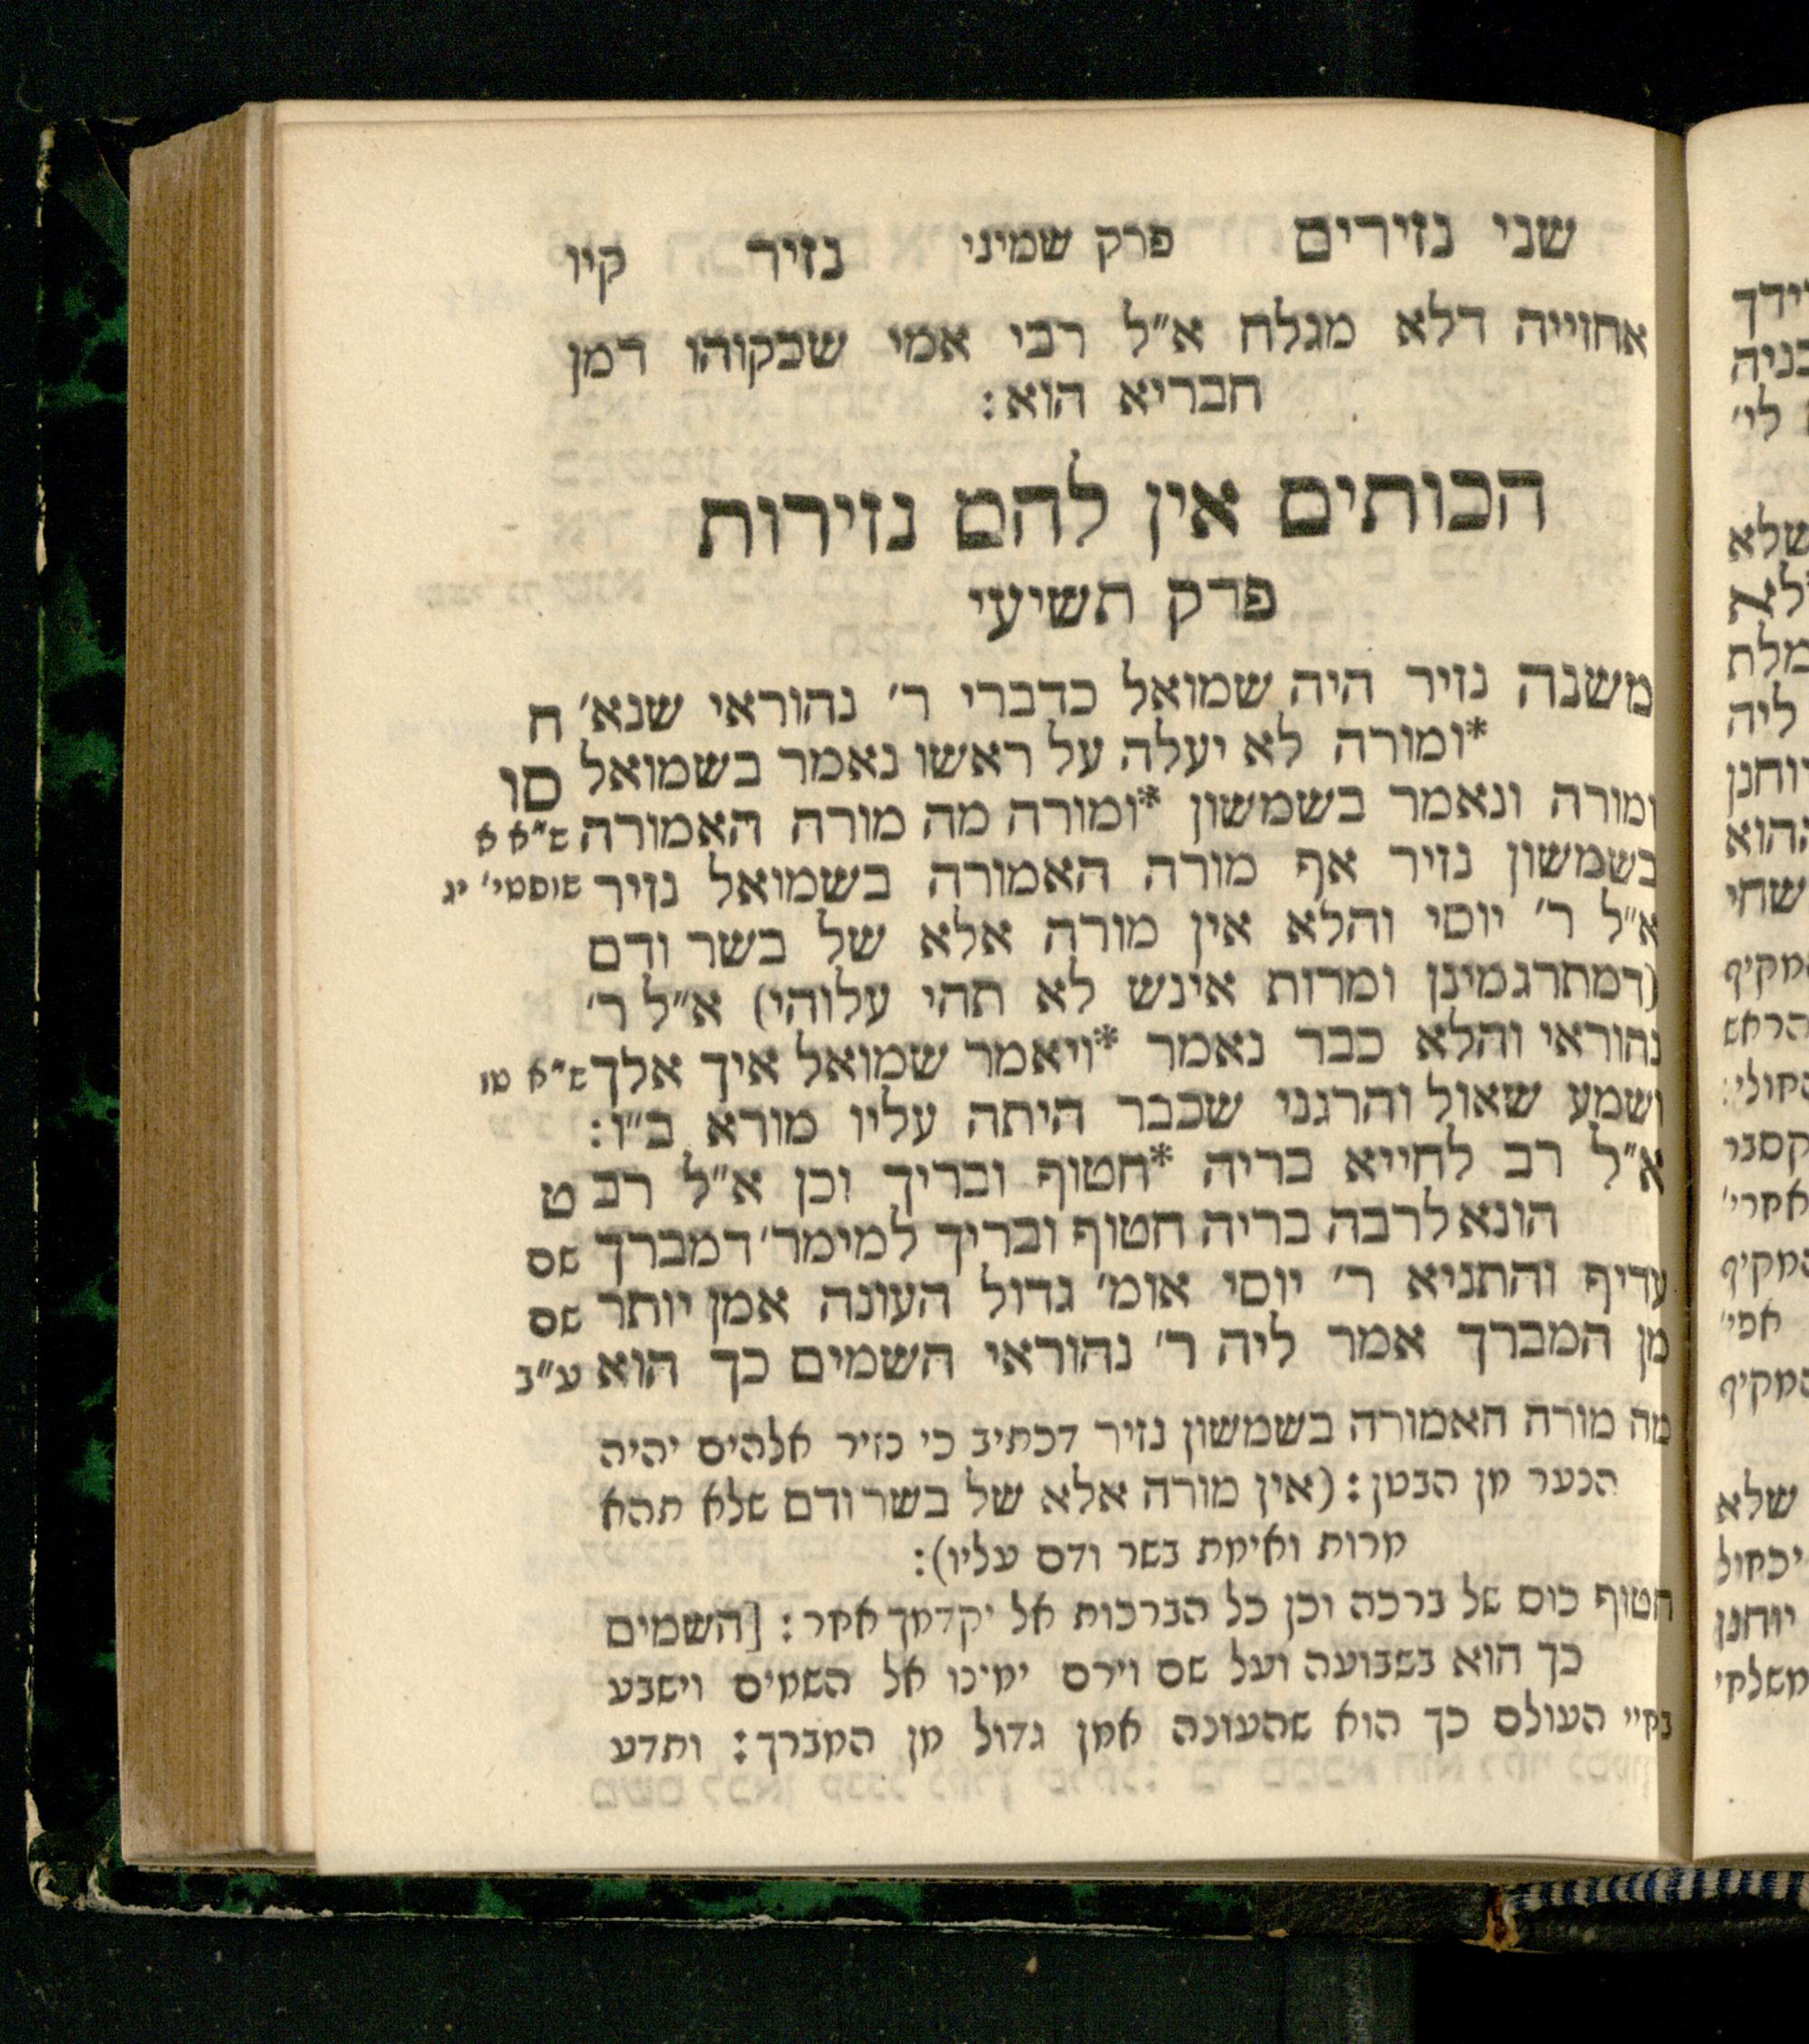 שני נזירים פרק שמיני נזיר קיו
אחוייה דלא מגלח א״ל רבי אמי שבקוהו דמן
חבריא הוא:
הכותים אין להם נזירות
פרק תשיעי
משנה נזיר היה שמואל כדברי ר׳ נהוראי שנא׳ ח
*ומורה לא יעלה על ראשו נאמר בשמואל סו
ומורה ונאמר בשמשון *ומורה מה מורה האמורה ש״א א
בשמשון נזיר אף מורה האמורה בשמואל נזיר שופטי׳ יג
א״ל ר׳ יוסי והלא אין מורה אלא של בשר ודם
(דמתרגמינן ומרות אינש לא תהי עלוהי) א״ל ר׳
נהוראי והלא כבר נאמר *ויאמר שמואל איך אלך ש״א טז
ושמע שאול והרגני שכבר היתה עליו מורא ב״ו:
א״ל רב לחייא בריה *חטוף ובריך וכן א״ל רב ט
הונא לרבה בריה חטוף ובריך למימר׳ דמברך שם
עדיף והתניא ר׳ יוסי אומ׳ גדול העונה אמן יותר שם
מן המברך אמר ליה ר׳ נהוראי השמים כך הוא ע״ב
מה מורה האמורה בשמשון נזיר דכתיב כי נזיר אלהים יהיה
הנער מן הבטן: (אין מורה אלא של בשר ודם שלא תהא
מרות ואימת בשר ודם עליו):
חטוף כוס של ברכה וכן כל הברכות אל יקדמך אחר: [השמים
כך הוא בשבועה ועל שם וירם ימינו אל השמים וישבע
בחיי העולם כך הוא שהעונה אמן גדול מן המברך: ותדע